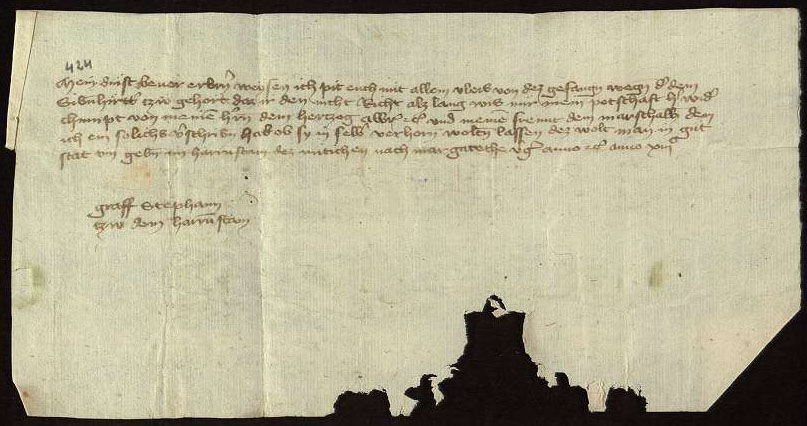 424
Mein dinst bevor erbern weysen ich pit euch mit allem vleis von dez gefangn wegn d' dem
gehort daz ir den nicht Richt alz lang wis mir mein potschaft h' wid'
chumpt von meinē h'rn dem herczog und meine freint dem marschalk dem
ich ein solichs v'schribn hab ob sy in selb verhorn woltn lassen dez wolt man in gut
stat tun gebn im harrnstain dez mitichen nach margarethe anno etc anno
graff Stephann
czw dem harrnstain